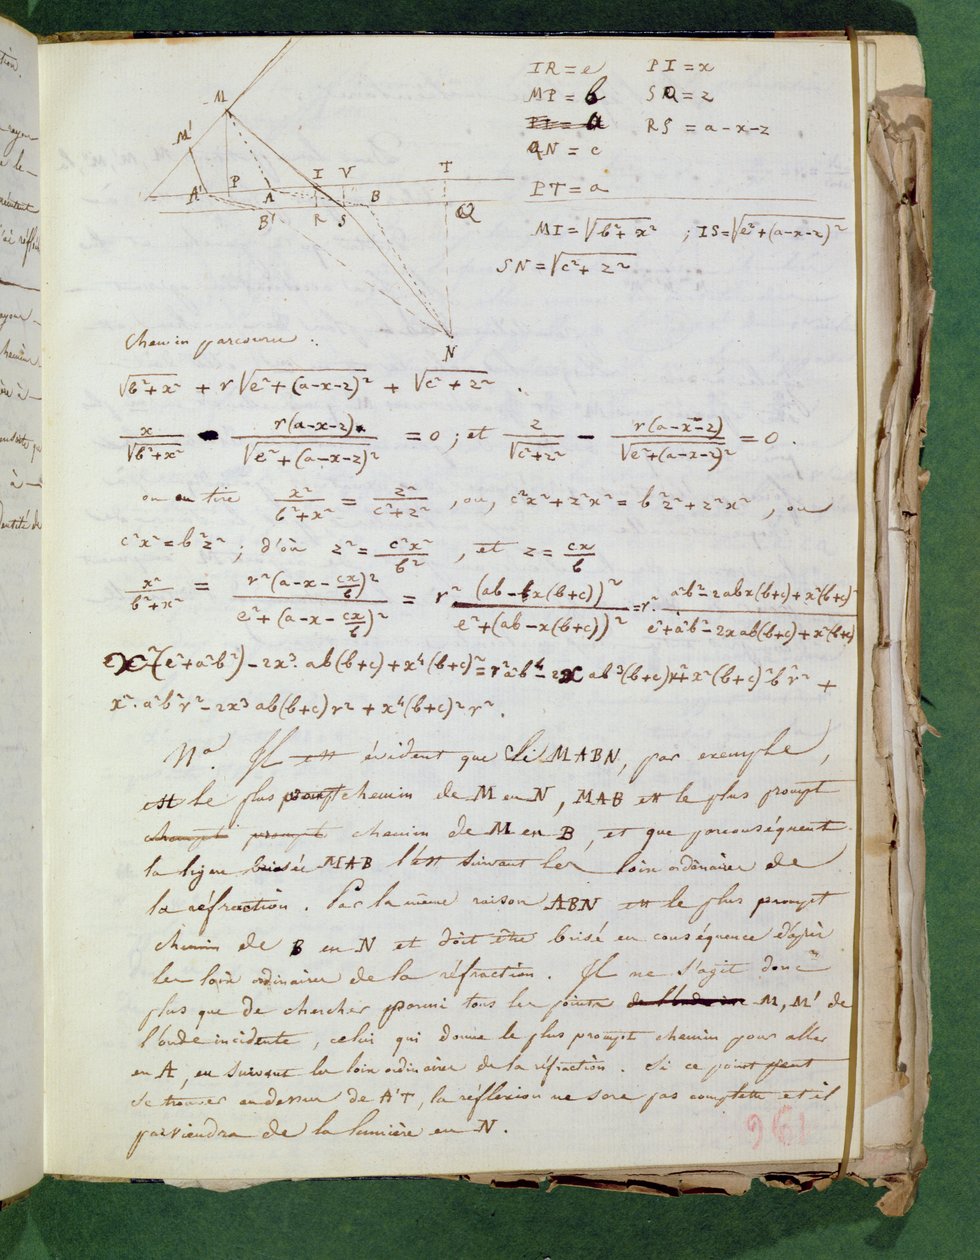 IR = e PI = x
MP = b SQ = z
PI = a RS = a-x-z
QN = c
PT = a
MI = √(b²+x²) ; IS = √(e²+(a-x-z)²)
SN = √(c²+z²)
M
M'
A' P A I V B T
B' R S Q
N
Chemin parcouru :
√(b²+x²) + r√(e²+(a-x-z)²) + √(c²+z²) .
x/√(b²+x²) - r(a-x-z)/√(e²+(a-x-z)²) = 0 ; et z/√(c²+z²) - r(a-x-z)/√(e²+(a-x-z)²) = 0 .
on en tire x²/(b²+x²) = z²/(c²+z²) , ou, c²x²+z²x² = b²z²+z²x² , ou
c²x² = b²z² ; d'où z² = c²x²/b² , et z = cx/b
x²/(b²+x²) = r²(a-x-cx/b)²/(e²+(a-x-cx/b)²) = r² (ab-x(b+c))²/(e²+(ab-x(b+c))²) = r². a²b²-2abx(b+c)+x²(b+c)²/(e²+a²b²-2xab(b+c)+x²(b+c)²)
x²(e²+a²b²)-2x³.ab(b+c)+x⁴(b+c)² = r²a²b⁴-2x ab³(b+c)r²+x²(b+c)²b²r² +
x².a²b²r²-2x³ab(b+c)r²+x⁴(b+c)²r².
Nª. Il est évident que si MABN, par exemple,
est le plus prompt chemin de M en N, MAB est le plus prompt
chemin de M en B, et que par conséquent
la ligne brisée MAB l'est suivant les loix ordinaires de
la réfraction. Par la même raison ABN est le plus prompt
chemin de B en N et doit être brisé en conséquence d'après
les loix ordinaires de la réfraction. Il ne s'agit donc
plus que de chercher parmi tous les points M, M' de
l'onde incidente, celui qui donne le plus prompt chemin pour aller
en A, en suivant les loix ordinaires de la réfraction. Si ce point peut
se trouver au dessus de A'T, la réflexion ne sera pas complette et il
parviendra de la lumière en N.
196